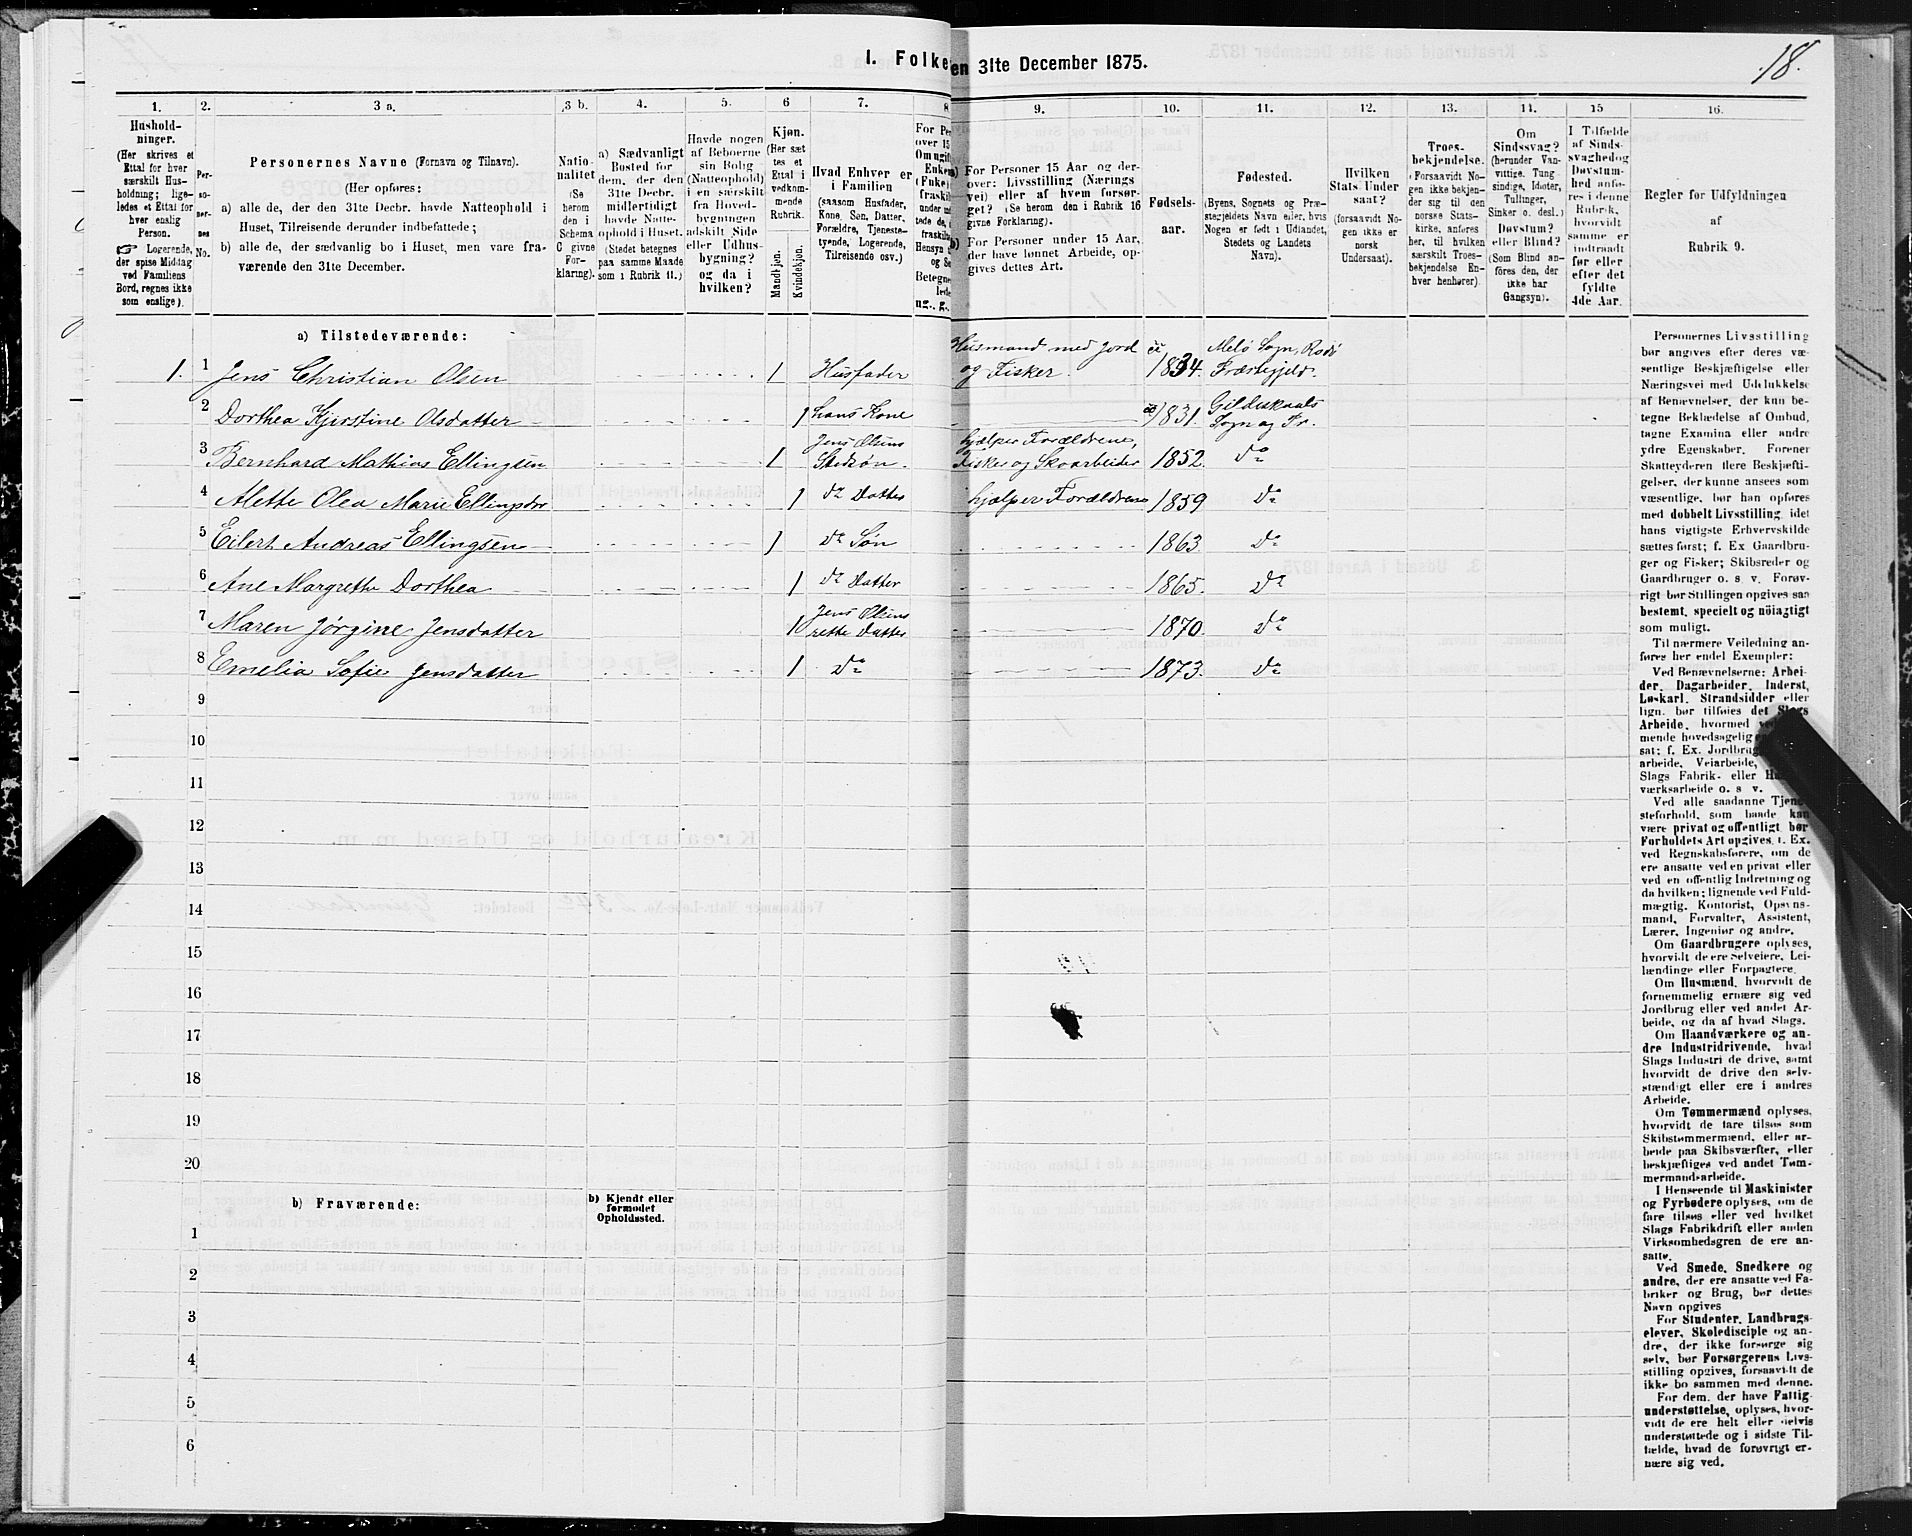 18.
I. Folke en 31te December 1875.
1. 2. 3 a. 3 b. 4. 5. 6 7. 8 9. 10. 11. 12. 13. 14. 15 16.
Hushold-
ninger.
(Her skrives et
Ettal for hver
særskilt Hus-
holdning; lige-
ledes et Ettal for
hver enslig
Person.
☞ Logerende,
der spise Middag
ved Familiens
Bord, regnes ikke
som enslige).
Per-
so-
ner-
nes
No.
Personernes Navne (Fornavn og Tilnavn).
(Her opføres:
a) alle de, der den 31te Decbr. havde Natteophold i
Huset, Tilreisende derunder indbefattede;
b) alle de, der sædvanlig bo i Huset, men vare fra-
værende den 31te December.
Natio-
nalitet
(Se
herom
den i
Schema
C givne
For-
klaring).
a) Sædvanligt
Bosted for
dem, der den
31te Decbr.
midlertidigt
havde Natte-
ophold i Huset.
(Stedet betegnes
paa samme Maade
som i Rubrik 11.)
Havde nogen
af Beboerne
sin Bolig
(Natteophold)
i en særskilt
fra Hoved-
bygningen
adskilt Side
eller Udhus-
bygning?
og da i
hvilken?
Kjøn.
(Her sæt
tes et
Ettal i
vedkom-
mende
Rubrik.
Mandkjøn.
Kvindekjøn.
Hvad Enhver er
i Familien
(saasom Husfader,
Kone, Søn, Datter,
Forældre, Tjeneste-
tyende, Logerende,
Tilreisende osv.)
For Pe
over 15
Om ugif
Enkem
(Enke)
fraskil
ug. g.
a) For Personer 15 Aar og der-
over: Livsstilling (Nærings
vei) eller af hvem forsør-
get? (Se herom den i Rubrik 16
givne Forklaring).
b) For Personer under 15 Aar,
der have lønnet Arbeide, op-
gives dettes Art.
Fødsels-
aar.
Fødested.
(Byens, Sognets og Præ-
stegjeldets Navn eller, hvis
Nogen er født i Udlandet,
Stedets og Landets
Navn).
Hvilken
Stats Under
saat?
(forsaavidt No-
gen ikke er
norsk
Undersaat).
Troes-
bekjendelse.
(Forsaavidt No-
gen ikke bekjen-
der sig til den
norske Stats-
kirke, anføres
her, til hvilken
særskilt Troes-
bekjendelse En-
hver henhører).
Om
Sindssvag?
(herunder Van-
vittige, Tung
sindige, Idioter,
Tullinger,
Sinker o. desl.)
Døvstum?
eller Blind?
(Som Blind an-
føres den, der
ikke har
Gangsyn).
I Tilfælde
af Sinds-
svaghedog
Døvstum-
hed anfø-
res i denne
Rubrik,
hvorvidt
samme er
indtraadt
før eller
efter det
fyldte
4de Aar.
Regler for Udfyldningen
af
Rubrik 9.
a) Tilstedeværende:
1. 1 Jens Christian Olsen 1 Husfader Husmand med Jord og Fisker. 1834. Melø Sogn, Rødø Præstegjeld.
2 Dorthea Kjirstine Olsdatter 1 hans Kone 1831. Gildeskaals Sogn og Pr.
3 Bernhard Mathias Ellingsen 1 Jens Olsens Stedsøn. hjælper Forældrene, Fisker og Skoarbeider 1852. do
4 Alette Olea Marie Ellingsdtr 1 do Datter hjælper Forældrene 1859 do
5 Eilert Andreas Ellingsen 1 do Søn 1863. do
6 Ane Margrethe Dorthea 1 do Datter 1865. do
7 Maren Jørgine Jensdatter 1 Jens Olsens rette Datter 1870. do
8 Emelia Sofie Jensdatter 1 do 1873. do
9
10
11
12
13
14
15
16
17
18
19
20
b) Fraværende:
b) Kjendt eller
formodet
Opholdssted.
1
2
3
4
5
6
Personernes Livsstilling
bør angives efter deres væ-
sentlige Beskjæftigelse eller
Næringsvei med Udelukkelse
af Benævnelser, der kun be-
tegne Beklædelse af Ombud,
tagne Examina eller andre
ydre Egenskaber. Forener
Skatteyderen flere Beskjæfti-
gelser, der kunne ansees som
væsentlige, bør han opføres
med dobbelt Livsstilling, idet
hans vigtigste Erhvervskilde
sættes først; f. Ex Gaardbru-
ger og Fisker; Skibsreder og
Gaardbruger o. s. v. Forøv-
rigt bør Stillingen opgives saa
bestemt, specielt og nöiagtigt
som muligt.
Til nærmere Veiledning an-
føres her endel Exempler:
Ved Benævnelserne: Arbei-
der, Dagarbeider, Inderst,
Løskarl, Strandsidder eller
lign. bør tilføies det Slags
Arbeide, hvormed ved
mende hovedsagelig e
sat; f. Ex. Jordbrug
arbeide, Veiarbeide,
Slags Fabrik- eller Ha
værksarbeide o. s v.
Ved alle saadanne Tjene
steforhold, som baade kan
være privat og offentligt, bør
Forholdets Art opgives, f. Ex.
ved Regnskabsførere, om de
ere ansatte ved en privat eller
ved en offentlig Indretning og
da hvilken; lignende ved Fuld-
mægtig, Kontorist, Opsyns-
mand, Forvalter, Assistent,
Lærer, Ingeniør og andre.
Om Gaardbrugere oplyses,
hvorvidt de ere Selveiere, Lei-
lændinge eller Forpagtere.
Om Husmænd, hvorvidt de
fornemmelig ernære sig ved
Jordbrug eller ved andet Ar-
beide, og da af hvad Slags.
Om Haandværkere og an-
dre Industridrivende, hvad
Slags Industri de drive, samt
hvorvidt de drive den selv-
stændigt eller ere i andres
Arbeide.
Om Tømmermænd oplyses,
hvorvidt de fare tilsøs som
Skibstømmermænd, eller ar-
beide paa Skibsværfter, eller
beskjæftiges ved andet Tøm-
mermandsarbeide.
I Henseende til Maskinister
og Fyrbødere oplyses, om de
fare tilsøs eller ved hvilket
Slags Fabrikdrift eller anden
Virksomhedsgren de ere an-
satte.
Ved Smede, Snedkere og
andre, der ere ansatte ved Fa-
briker og Brug, bør dettes
Navn opgives
For Studenter, Landbrugs-
elever, Skoledisciple og an-
dre, der ikke forsørge sig
selv, bør Forsørgerens Livs-
stilling opgives, forsaavidt de
ikke bo sammen med denne.
For dem, der have Fattig-
understøttelse, oplyses, hvor-
vidt de ere helt eller delvis
understøttede og i sidste Til-
fælde, hvad de forøvrigt er-
nære sig ved.